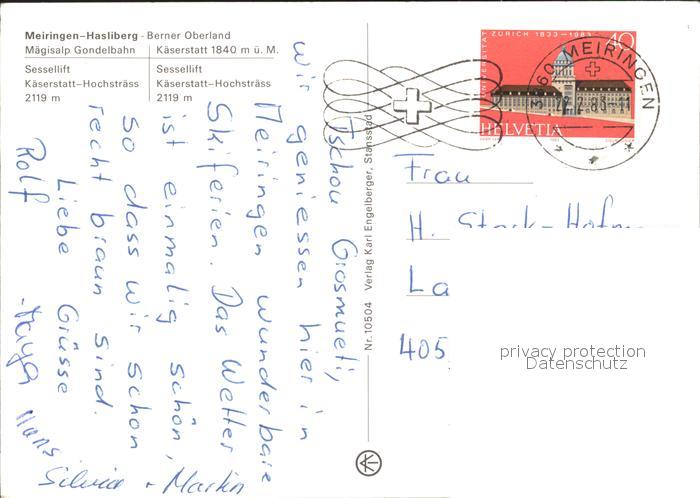 Meiringen-Hasliberg - Berner Oberland
Mägisalp Gondelbahn
Käserstatt 1840 m ü. M.
Sessellift
Käserstatt-Hochsträss
2119 m
Sessellift
Käserstatt-Hochsträss
2119 m
Tschou Grosmueti,
wir geniessen hier in
Meiringen wunderbare
Skiferien. Das Wetter
ist einmalig schön,
so dass wir schon
recht braun sind.
Liebe Grüsse
Rolf
Hans
Silvia + Martin
Nr. 10504 Verlag Karl Engelberger, Stansstad
UNIVERSITÄT ZÜRICH 1833-1983
40
HELVETIA
3860 MEIRINGEN
Frau
H. Stark-Hofm
La
405
privacy protection
Datenschutz